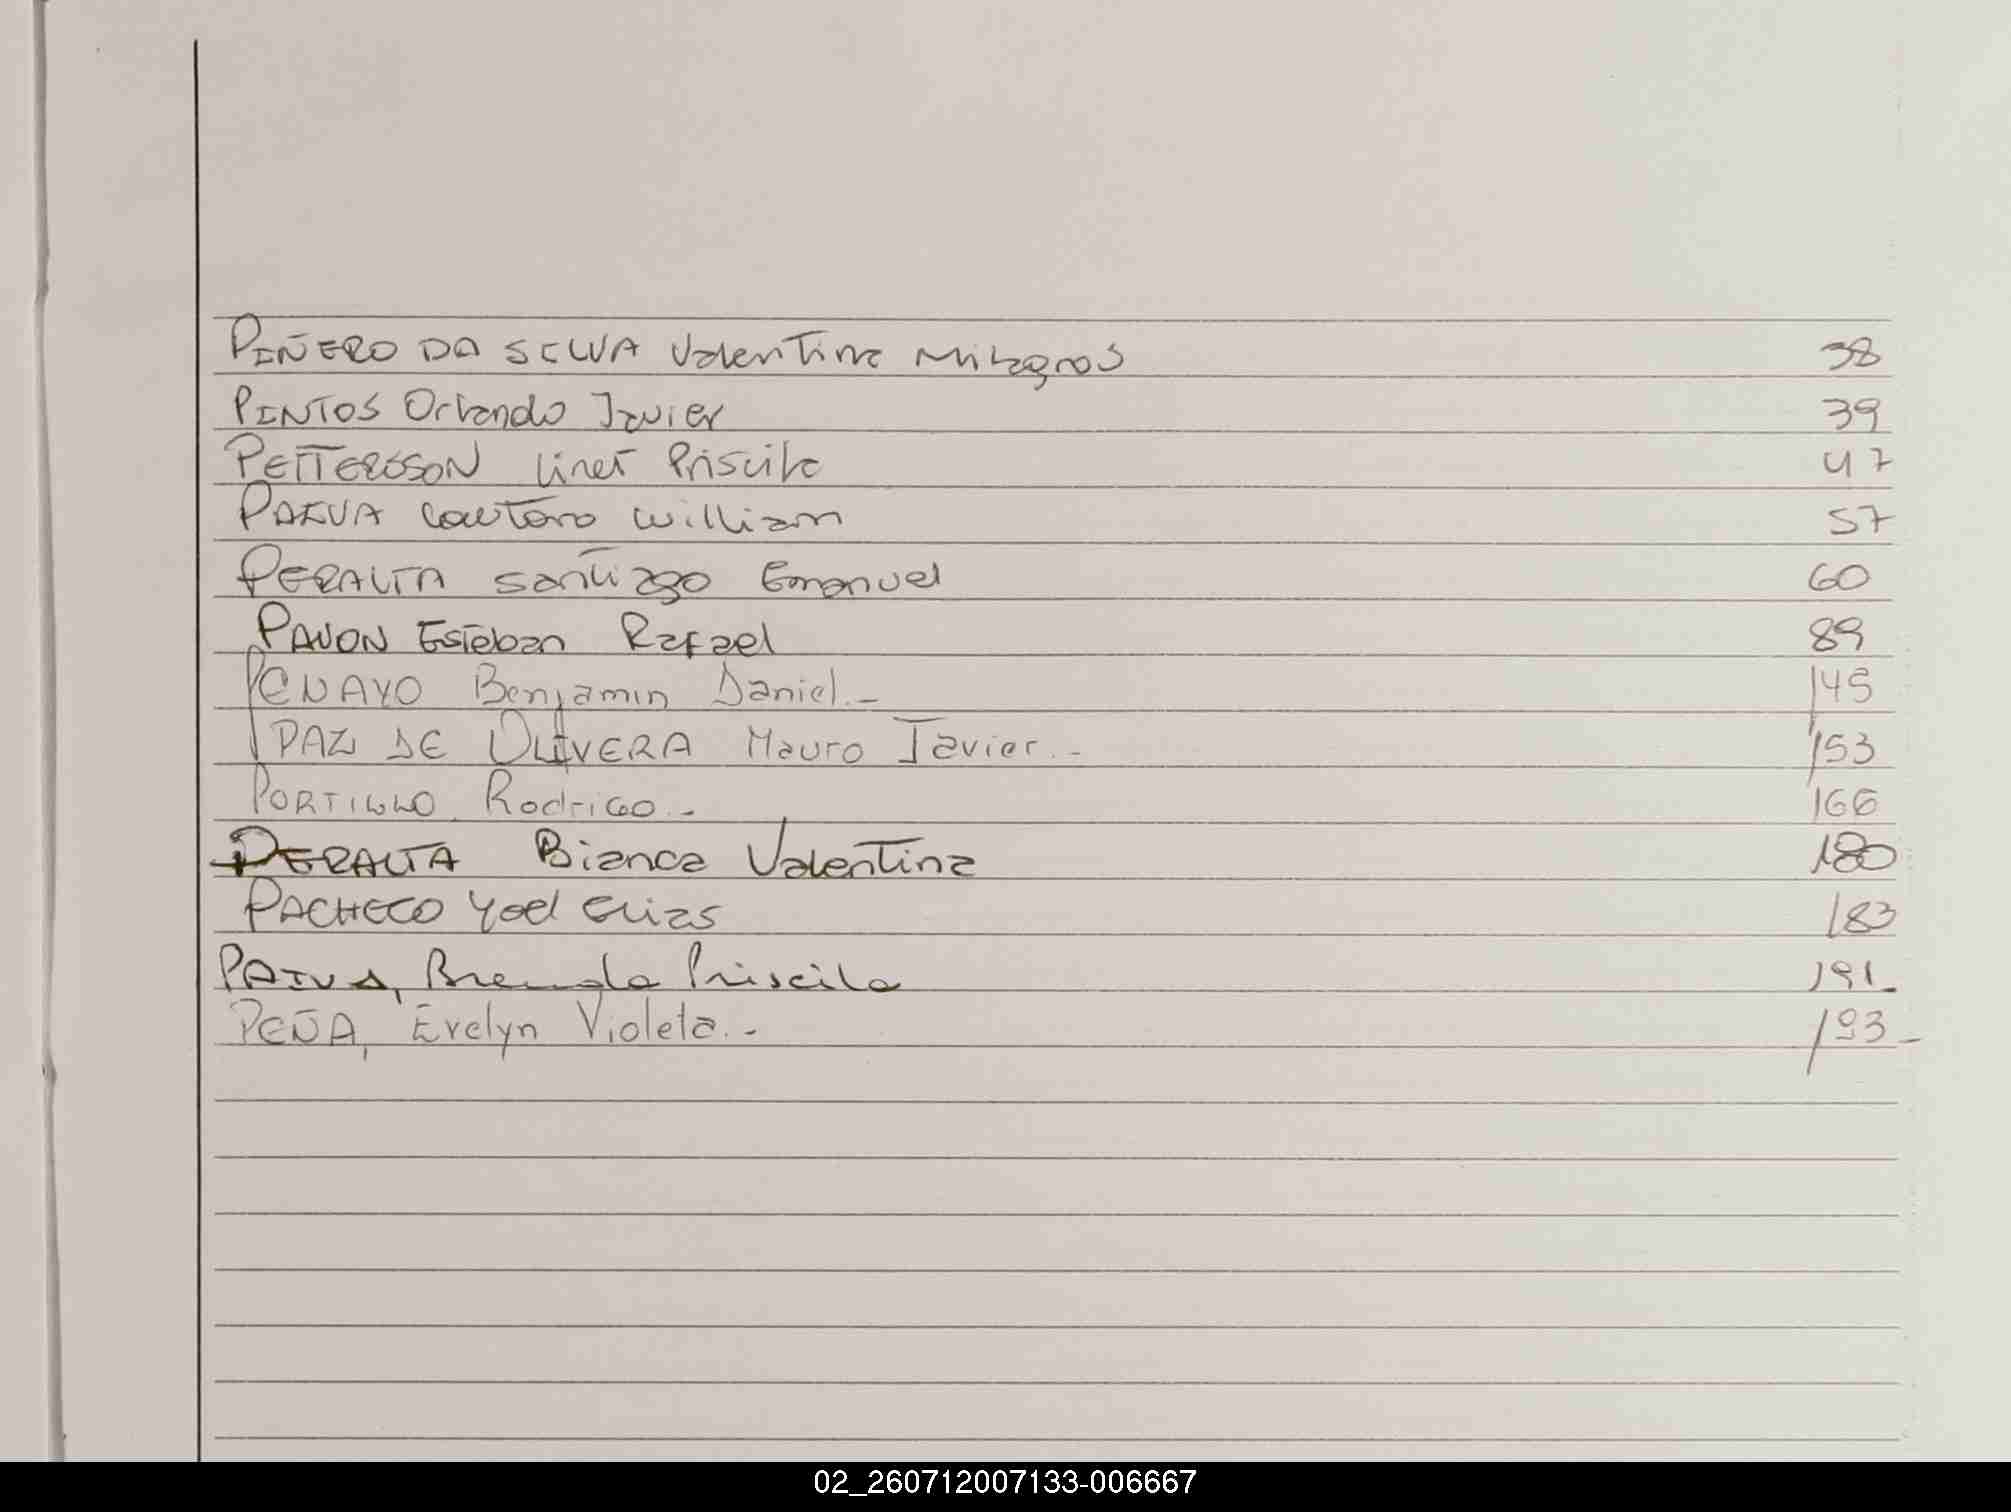 PIÑERO DA SILVA Valentina Milagros 38
PINTOS Orlando Javier 39
PETTERSSON Linet Priscila 47
PAIVA Lautaro William 57
PERALTA Santiago Emanuel 60
PAVON Esteban Rafael 89
PENAYO Benjamin Daniel.- 145
PAZ DE OLIVERA Mauro Javier.- 153
PORTILLO Rodrigo.- 166
PERALTA Bianca Valentina 180
PACHECO Yoel Elias 183
PAIVA, Brenda Priscila 191-
PEÑA, Evelyn Violeta.- 193-
02_260712007133-006667